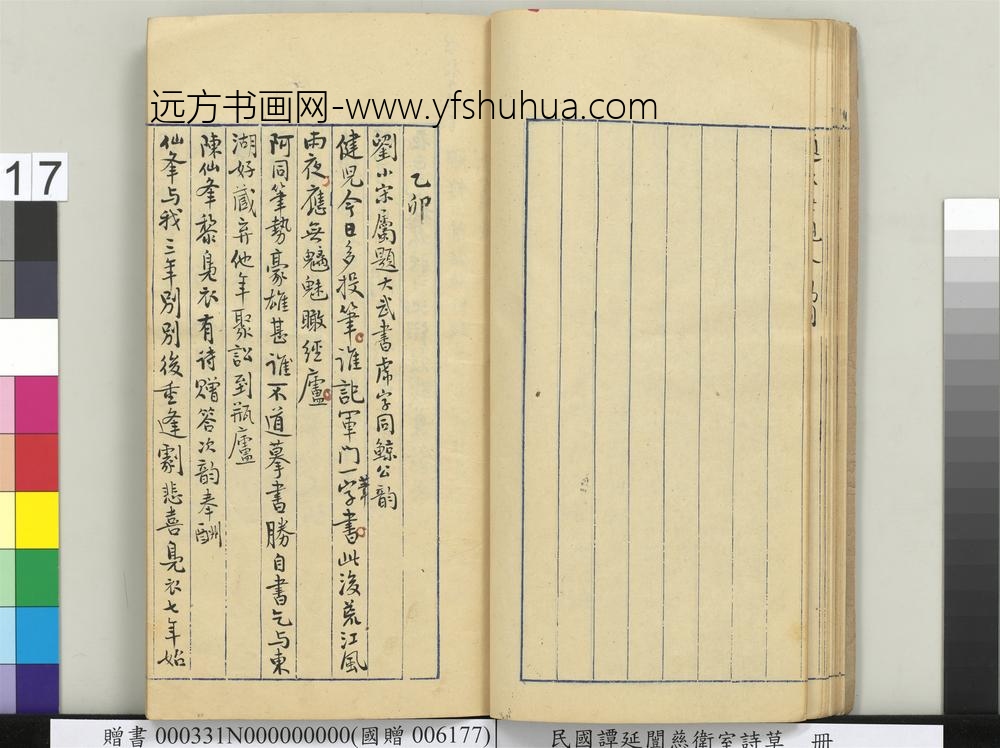 远方书画网-www.yfshuhua.com
乙卯
劉小宗屬題大武書虎字同鯨公韵
健児今日多投筆誰記軍門一筆字書此後荒江風
雨夜應無魑魅瞰經廬
阿同筆勢豪雄甚誰不道摹書勝自書乞与東
湖好藏弆他年聚訟到瓶廬
陳仙峯黎鳧衣有诗贈答次韵奉酬
仙峯与我三年别别後重逢劇悲喜鳧衣七年始
17
贈書 000331N000000000(國贈 006177)
民國譚延闓慈衛室詩草 冊